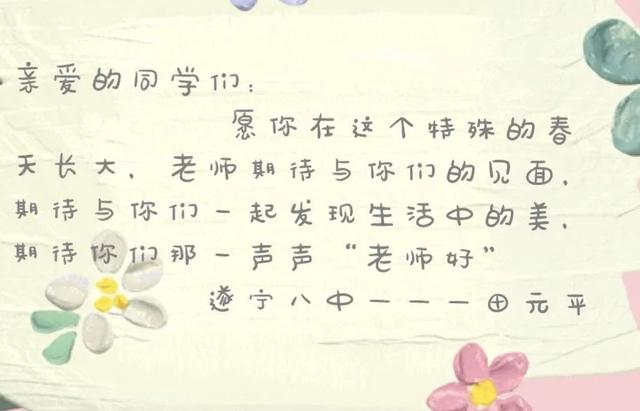 亲爱的同学们：
愿你在这个特殊的春
天长大，老师期待与你们的见面，
期待与你们一起发现生活中的美，
期待你们那一声声“老师好”
遂宁八中一一一田元平